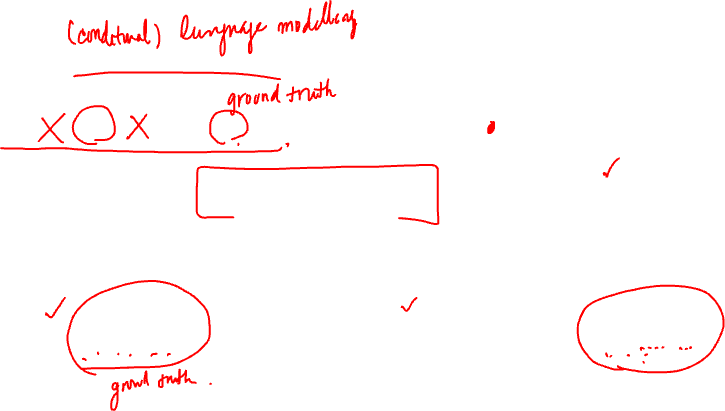 (conditional) language modelling
ground truth
X X
ground truth.